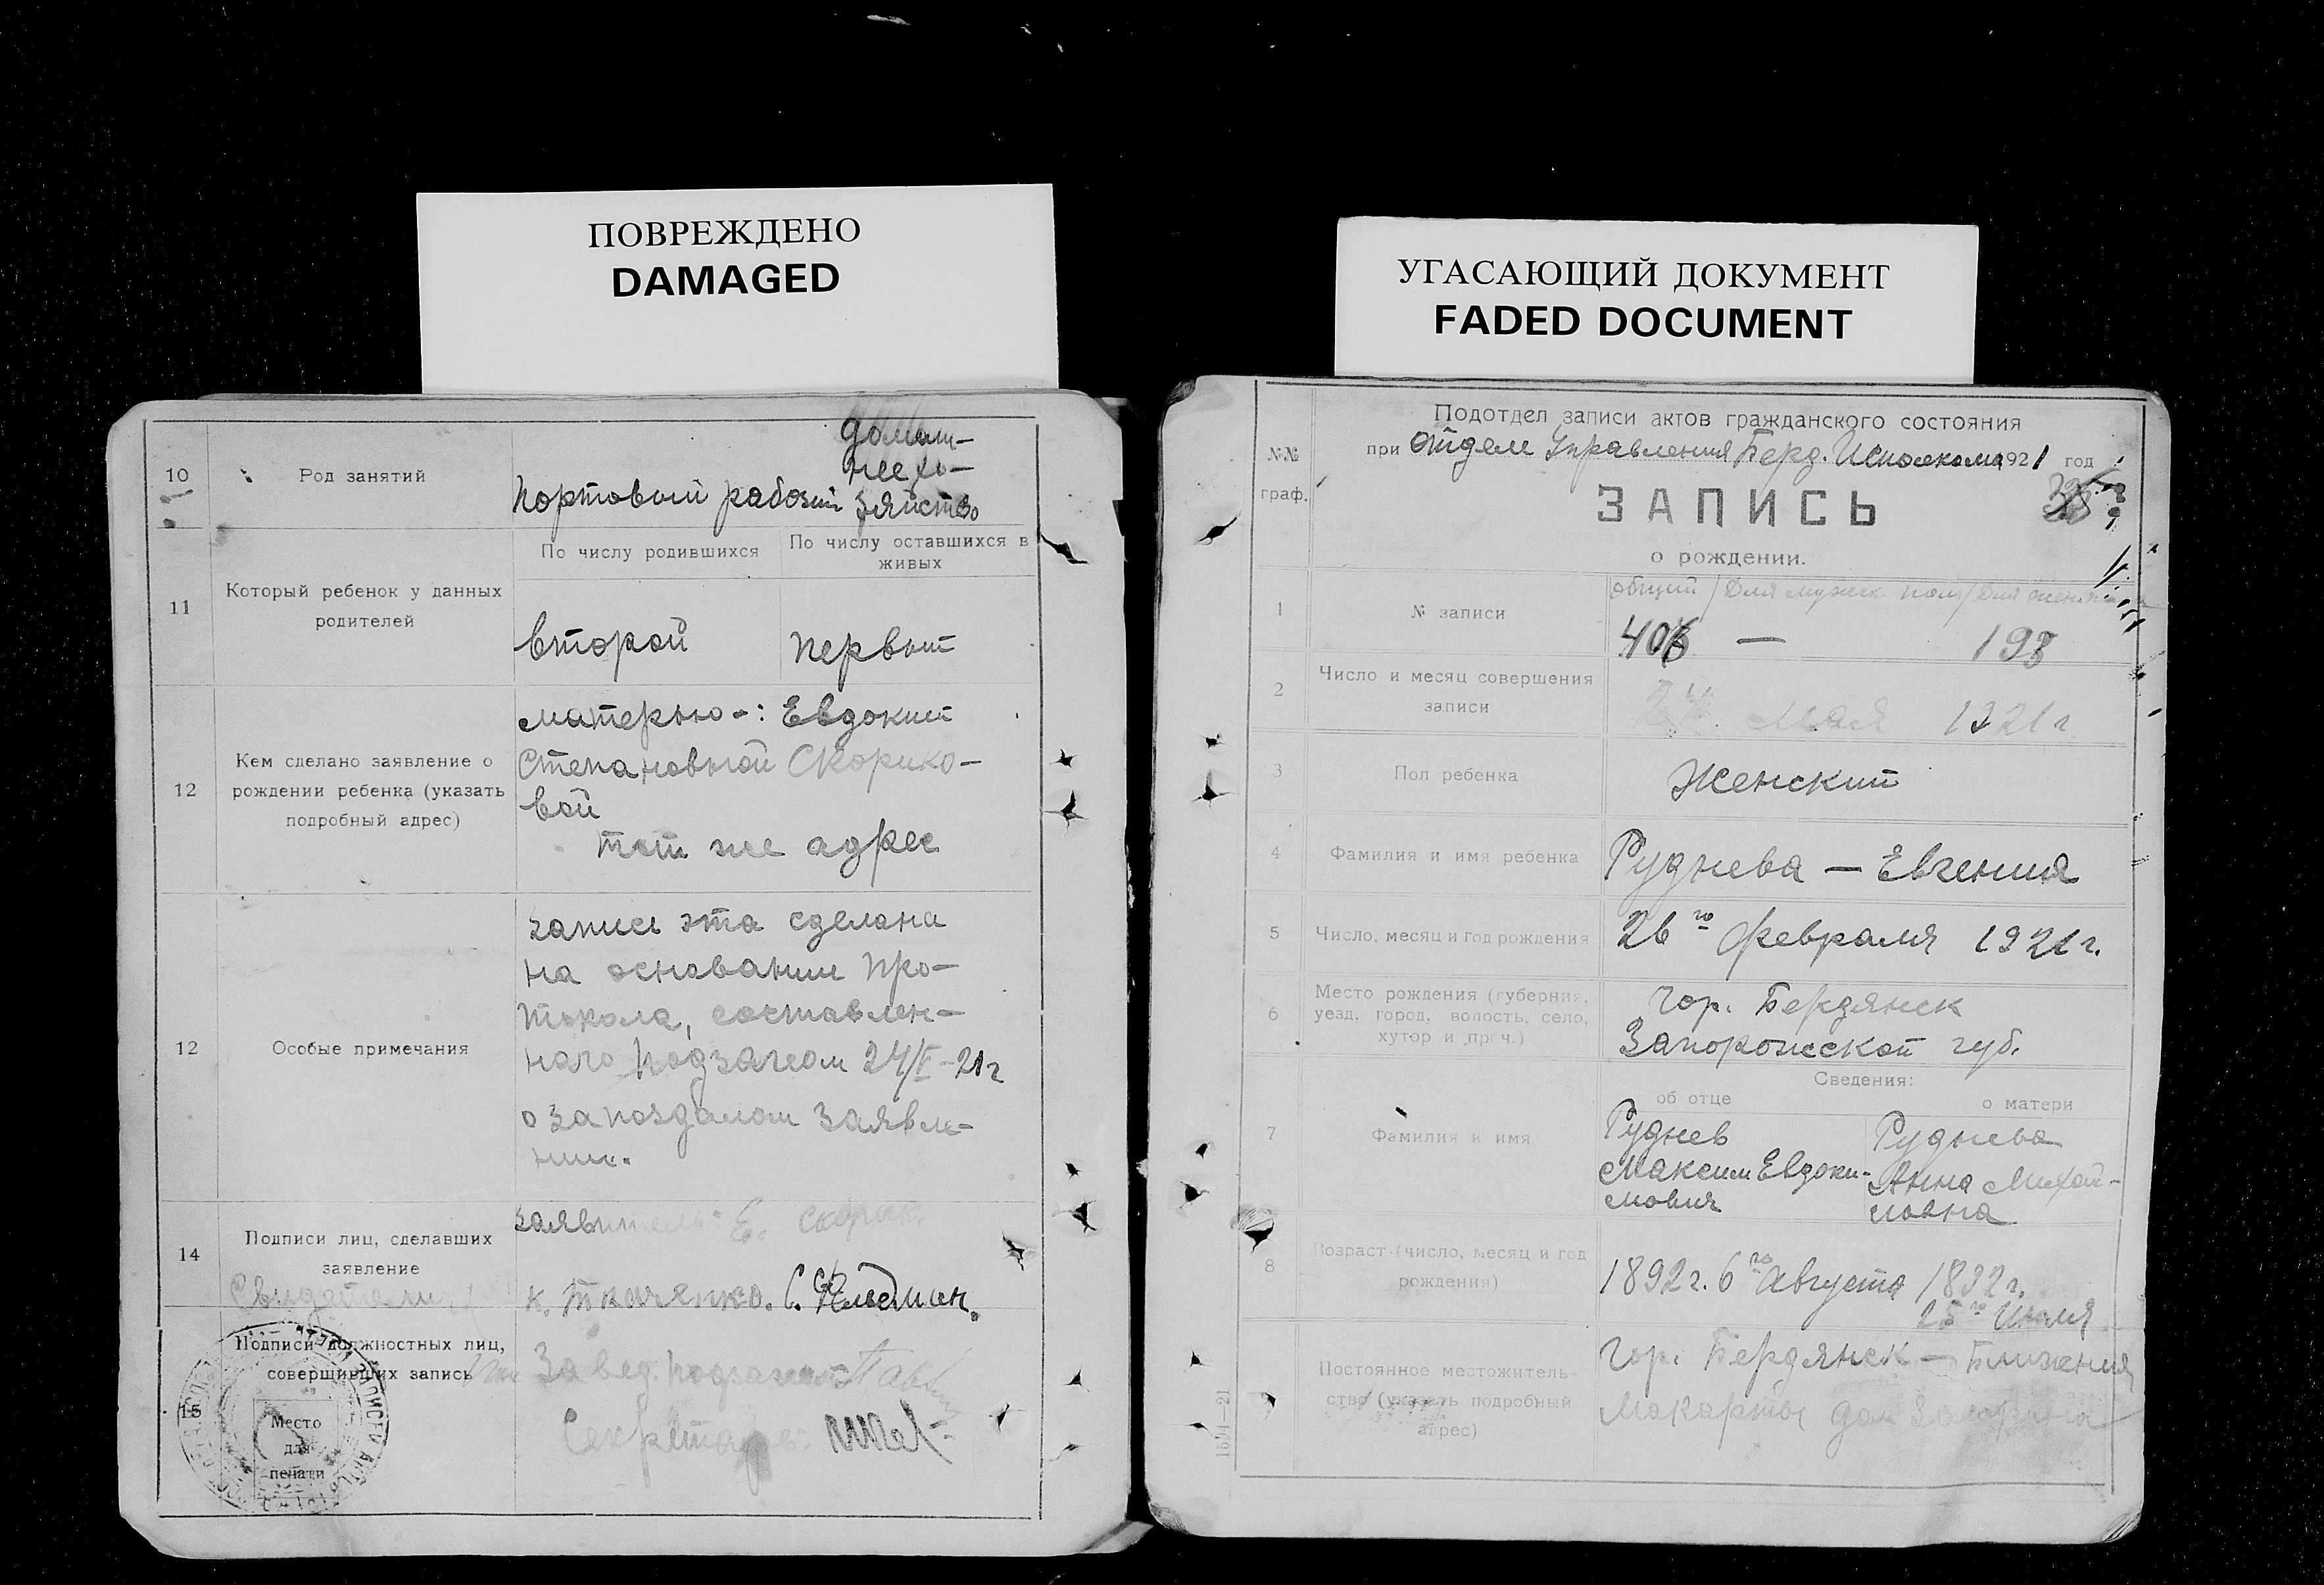 ПОВРЕЖДЕНО
DAMAGED
10
Род занятий
Портовый рабочий
домаш-
нее хо-
зяйство
11
Который ребенок у данных
родителей
По числу родившихся
По числу оставшихся в
живых
второй
первый
12
Кем сделано заявление о
рождении ребенка (указать
подробный адрес)
матерью-: Евдокией
Степановной Скорико-
вой
тот же адрес
12
Особые примечания
запись эта сделана
на основании про-
токола, составлен-
ного подзагсом 24/V-21г
о запоздалом заявле-
нии.
14
Подписи лиц, сделавших
заявление
Свидетели
заявитель: Е. Скорик
к. Ткаченко. С.
15
Подписи должностных лиц,
совершивших запись
Место
для
печати
Завед. подзагсом
Секретарь:
УГАСАЮЩИЙ ДОКУМЕНТ
FADED DOCUMENT
№№
граф.
Подотдел записи актов гражданского состояния
при Отделе Управления Берд. Исполкома 1921 год
ЗАПИСЬ
о рождении.
1
№ записи
общий / Для мужск пола / Для женск
406 — 198
2
Число и месяц совершения
записи
24 Мая 1921 г.
3
Пол ребенка
Женский
4
Фамилия и имя ребенка
Руднева — Евгения
5
Число, месяц и год рождения
26го Февраля 1921 г.
6
Место рождения (губерния,
уезд, город, волость, село,
хутор и проч.)
Гор. Бердянск
Запорожской губ.
Сведения:
об отце
о матери
7
Фамилия и имя
Руднев
Максим Евдоки-
мович
Руднева
Анна Михай-
ловна
8
Возраст (число, месяц и год
рождения)
1892 г. 6го Августа
1892 г.
25го Июля
9
Постоянное местожитель-
ство (указать подробный
адрес)
Гор. Бердянск — Ближения
Макарты дом
1591—21